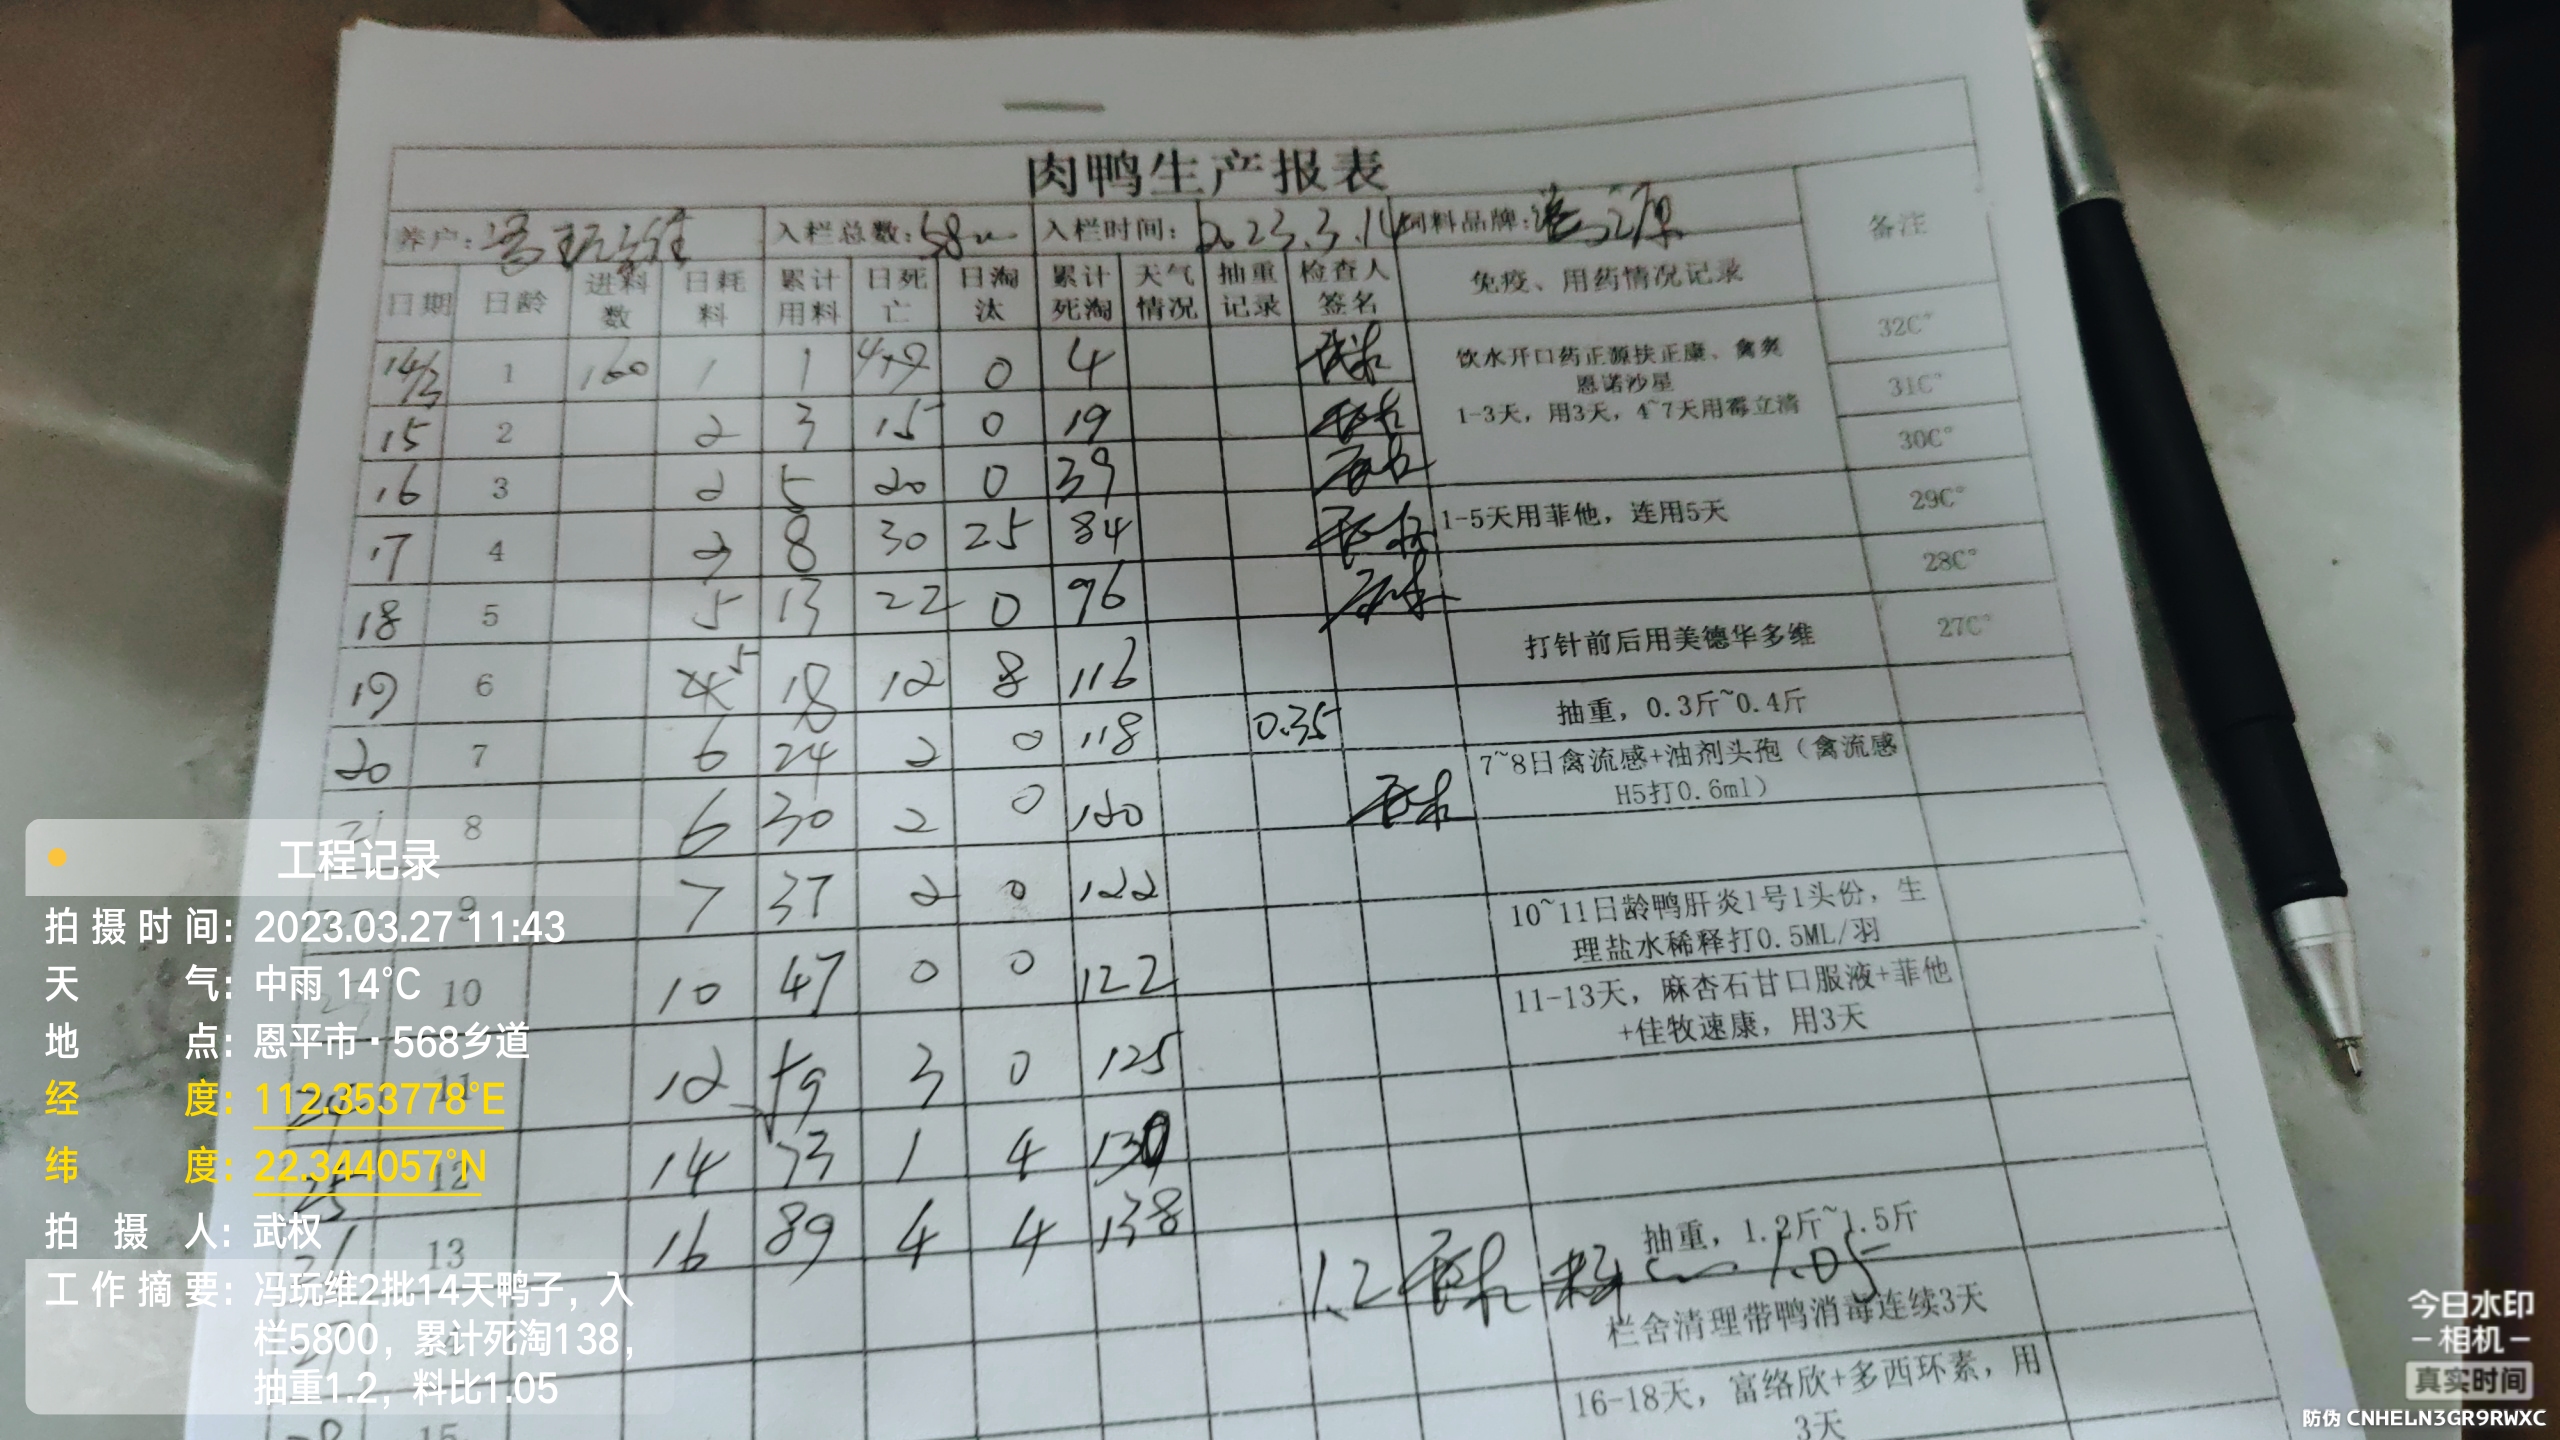 肉鸭生产报表
养户: 冯玩维 入栏总数: 5800 入栏时间: 2023.3.14 饲料品牌: 备注
日期 日龄 进料数 日耗料 累计用料 日死亡 日淘汰 累计死淘 天气情况 抽重记录 检查人签名 免疫、用药情况记录
14/3 1 160 1 1 0 4 32C°
饮水开口药正源扶正康、禽炎
恩诺沙星
1-3天，用3天，4~7天用霉立清
31C°
15 2 2 3 15 0 19 30C°
16 3 2 5 20 0 39
17 4 3 8 30 25 84 1-5天用菲他，连用5天 29C°
18 5 5 13 22 0 96 28C°
19 6 5 18 12 8 116 打针前后用美德华多维 27C°
20 7 6 24 2 0 118 0.35 抽重，0.3斤~0.4斤
21 8 6 30 2 0 120 7~8日禽流感+油剂头孢（禽流感
H5打0.6ml）
9 7 37 2 0 122
10 10 47 0 0 122 10~11日龄鸭肝炎1号1头份，生
理盐水稀释打0.5ML/羽
24 11 12 59 3 0 125 11-13天，麻杏石甘口服液+菲他
+佳牧速康，用3天
25 12 14 73 1 4 130
13 16 89 4 4 138 抽重，1.2斤~1.5斤
1.2 料 1.05
27 栏舍清理带鸭消毒连续3天
28 15 16-18天，富络欣+多西环素，用
3天
工程记录
拍摄时间: 2023.03.27 11:43
天气: 中雨 14°C
地点: 恩平市·568乡道
经度: 112.353778°E
纬度: 22.344057°N
拍摄人: 武权
工作摘要: 冯玩维2批14天鸭子，入
栏5800，累计死淘138，
抽重1.2，料比1.05
今日水印
-相机-
真实时间
防伪 CNHELN3GR9RWXC